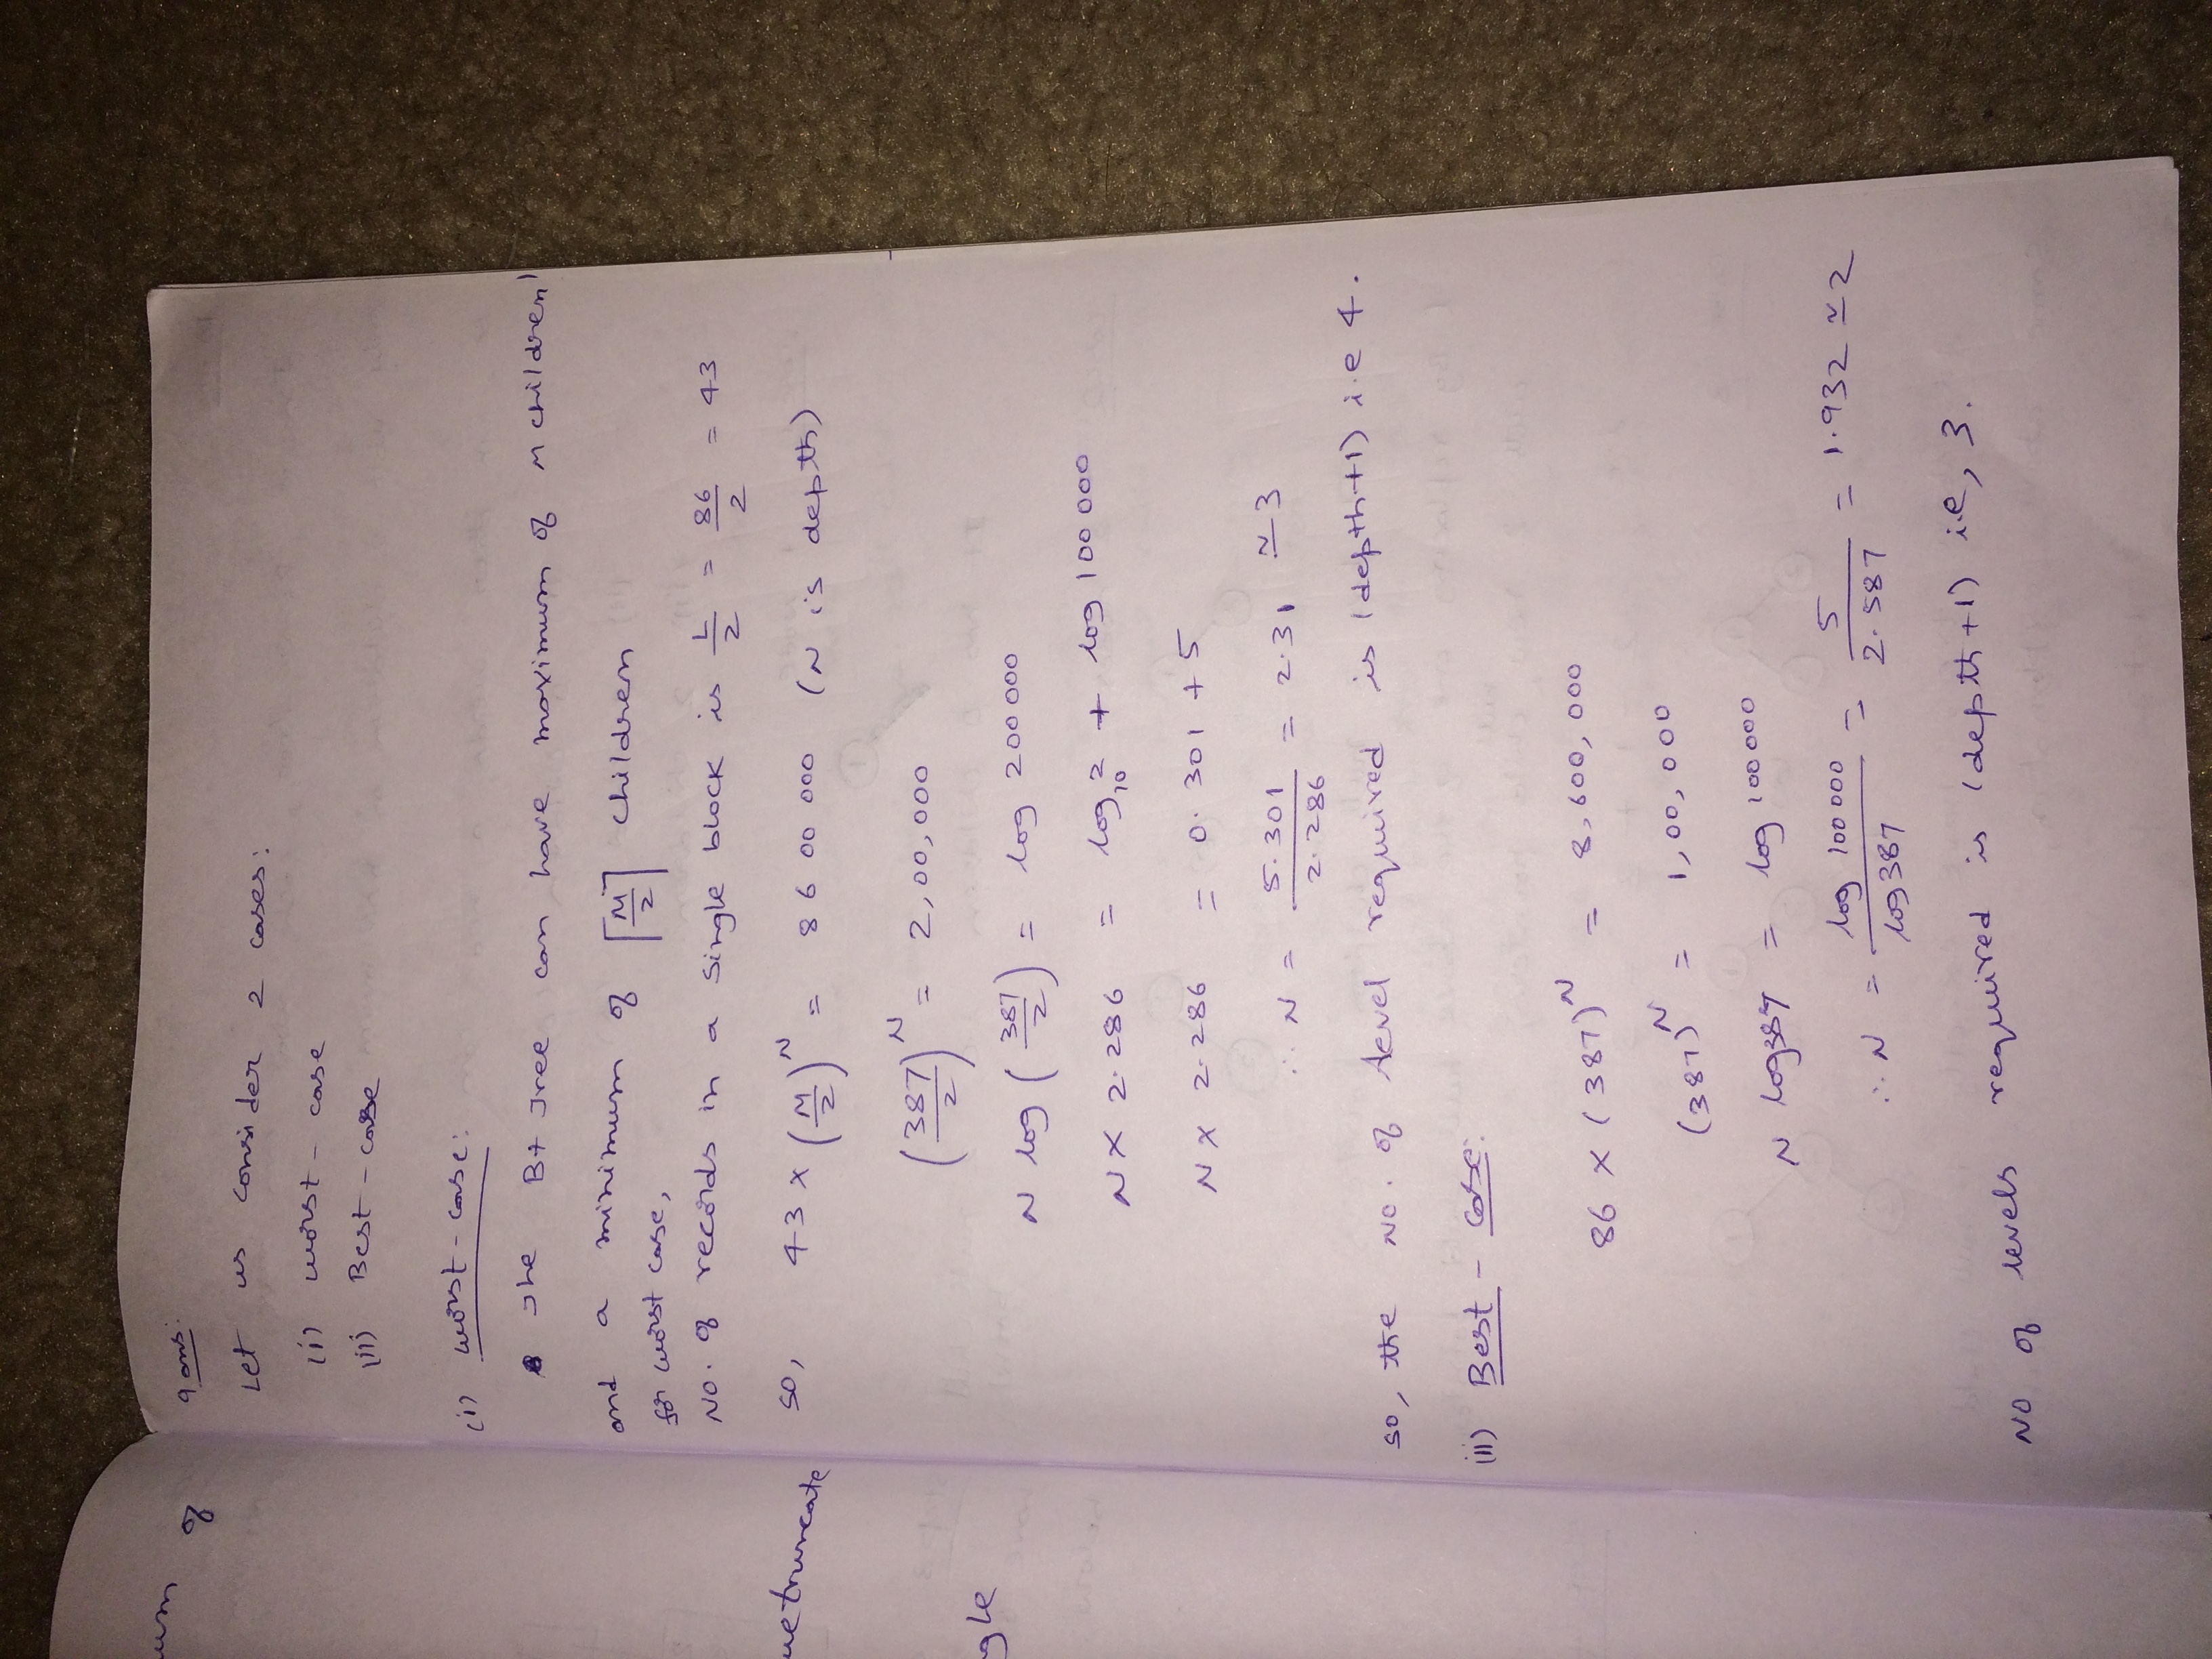 of
ue truncate
gle
9 ans:
Let us consider 2 cases:
(i) worst - case
(ii) Best - case
(i) worst - case:
The B+ Tree can have maximum of M children
and a minimum of ⌈M/2⌉ children
for worst case,
No. of records in a single block is L/2 = 86/2 = 43
so, 43 × (M/2)^N = 8600000 (N is depth)
(387/2)^N = 2,00,000
N log (387/2) = log 200000
N × 2.286 = log₁₀ 2 + log 100000
N × 2.286 = 0.301 + 5
∴ N = 5.301/2.286 = 2.31 ≃ 3
so, the No. of level required is (depth+1) i.e 4.
(ii) Best - case:
86 × (387)^N = 8,600,000
(387)^N = 1,00,000
N log387 = log 100000
∴ N = log 100000/log387 = 5/2.587 = 1.932 ≃ 2
NO of levels required is (depth+1) i.e, 3.